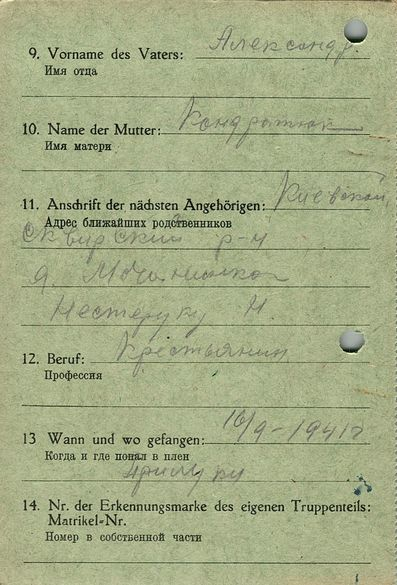 9. Vorname des Vaters: Александр.
Имя отца
10. Name der Mutter:
Имя матери
11. Anschrift der nächsten Angehörigen: Киевской,
Адрес ближайших родственников
Сквирский р-н
д.
Нестеруку Н.
12. Beruf: Крестьянин
Профессия
13 Wann und wo gefangen: 16/9-1941г
Когда и где попал в плен
Прилуки
14. Nr. der Erkennungsmarke des eigenen Truppenteils:
Matrikel-Nr.
Номер в собственной части